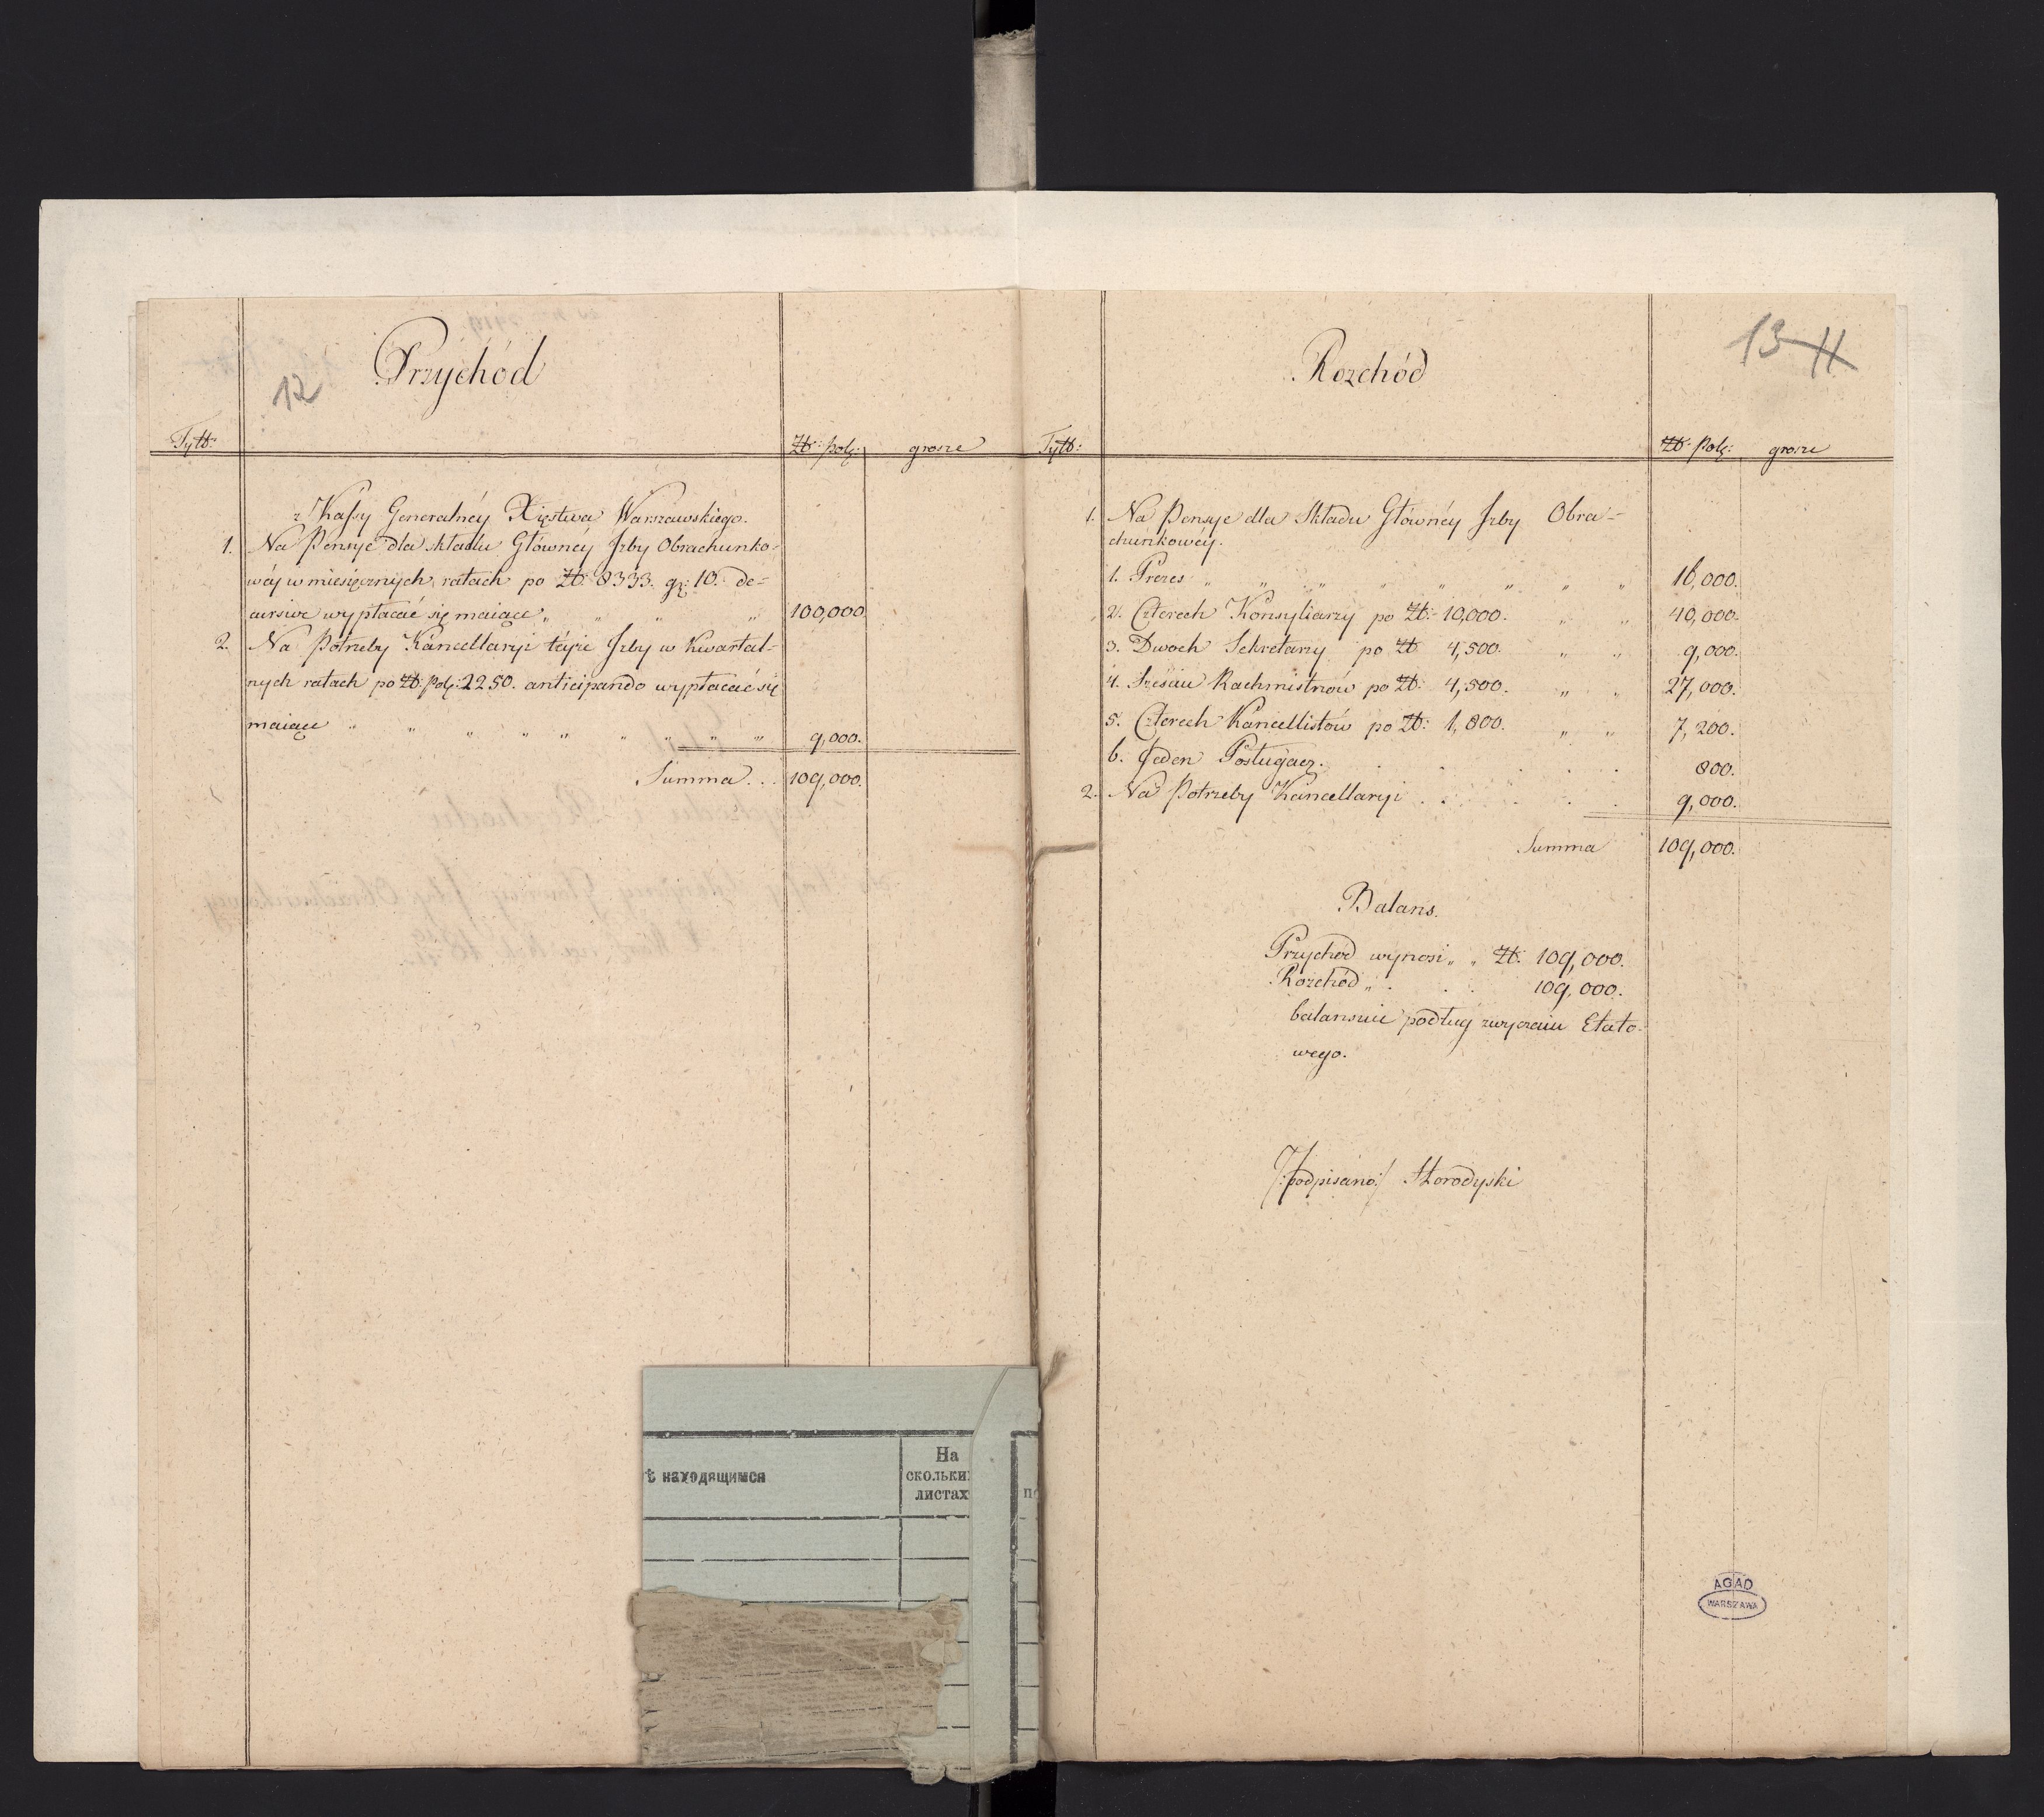 Przychód
12
Tytł:
Zł: polę:
grosze
z Kassy Generalnéy Xięstwa Warszawskiego.
1. Na Pensye dla składu Głównéy Jzby Obrachunko-
wéy w miesięcznych ratach po Zł: 8333. gr: 10. de-
cursive wypłacać się maiące „ „ „ „ 100,000.
2. Na Potrzeby Kancellaryi téyże Jzby w Kwartal-
nych ratach po Zł: Polę: 2250. anticipando wypłacać się
maiące „ „ „ „ „ „ „ „ „ 9,000.
Summa . . . 109,000.
Rozchód
13 11
Tytł:
Zł: Polę:
grosze
1. Na Pensye dla Składu Głównéy Jzby Obra-
chunkowéy.
1. Prezes „ „ „ „ „ „ „ „ 16,000.
2. Czterech Konsyliarzy po Zł: 10,000. „ „ 40,000.
3. Dwoch Sekretarzy po Zł 4,500. „ „ 9,000.
4. Sześciu Rachmistrzów po Zł: 4,500. „ „ 27,000.
5. Czterech Kancellistów po Zł: 1,800. „ „ 7,200.
6. Jeden Posługacz. . . . . . 800.
2. Na Potrzeby Kancellaryi . . . . . 9,000.
Summa 109,000.
Balans.
Przychód wynosi „ „ Zł: 109,000.
Rozchód „ . . . 109,000.
balansuie podług zwyczaiu Etato-
wego.
/:podpisano:/ Horodyski
ѣ находящимся
На
скольки
листах
по
AGAD
WARSZAWA